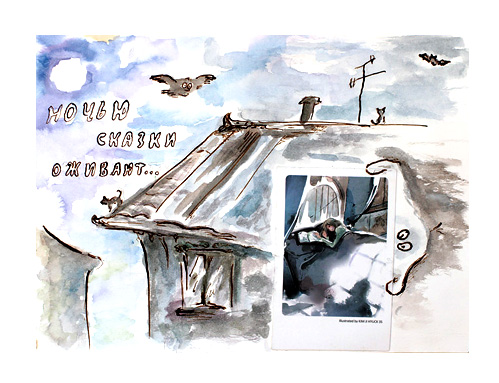 НОЧЬЮ
СКАЗКИ
ОЖИВАЮТ...
Illustrated by KIM JI HYUCK